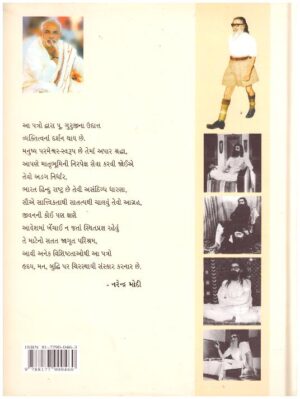 આ પત્રો દ્વારા પૂ. ગુરુજીના ઉદાત્ત
વ્યક્તિત્વનાં દર્શન થાય છે.
મનુષ્ય પરમેશ્વર-સ્વરૂપ છે તેમાં અપાર શ્રદ્ધા,
આપણે માતૃભૂમિની નિરપેક્ષ સેવા કરવી જોઈએ
તેવો અડગ નિર્ધાર,
ભારત હિન્દુ રાષ્ટ્ર છે તેવી અસંદિગ્ધ ધારણા,
સૌએ સાત્ત્વિકતાથી સાતત્યથી ચાલવું તેવો આગ્રહ,
જીવનની કોઈ પણ ક્ષણે
આવેશમાં ખેંચાઈ ન જતાં સ્થિતપ્રજ્ઞ રહેવું
તે માટેનો સતત જાગૃત પરિશ્રમ,
આવી અનેક વિશિષ્ટતાઓથી આ પત્રો
હૃદય, મન, બુદ્ધિ પર ચિરસ્થાયી સંસ્કાર કરનાર છે.
- નરેન્દ્ર મોદી
ISBN : 81-7790-046-3